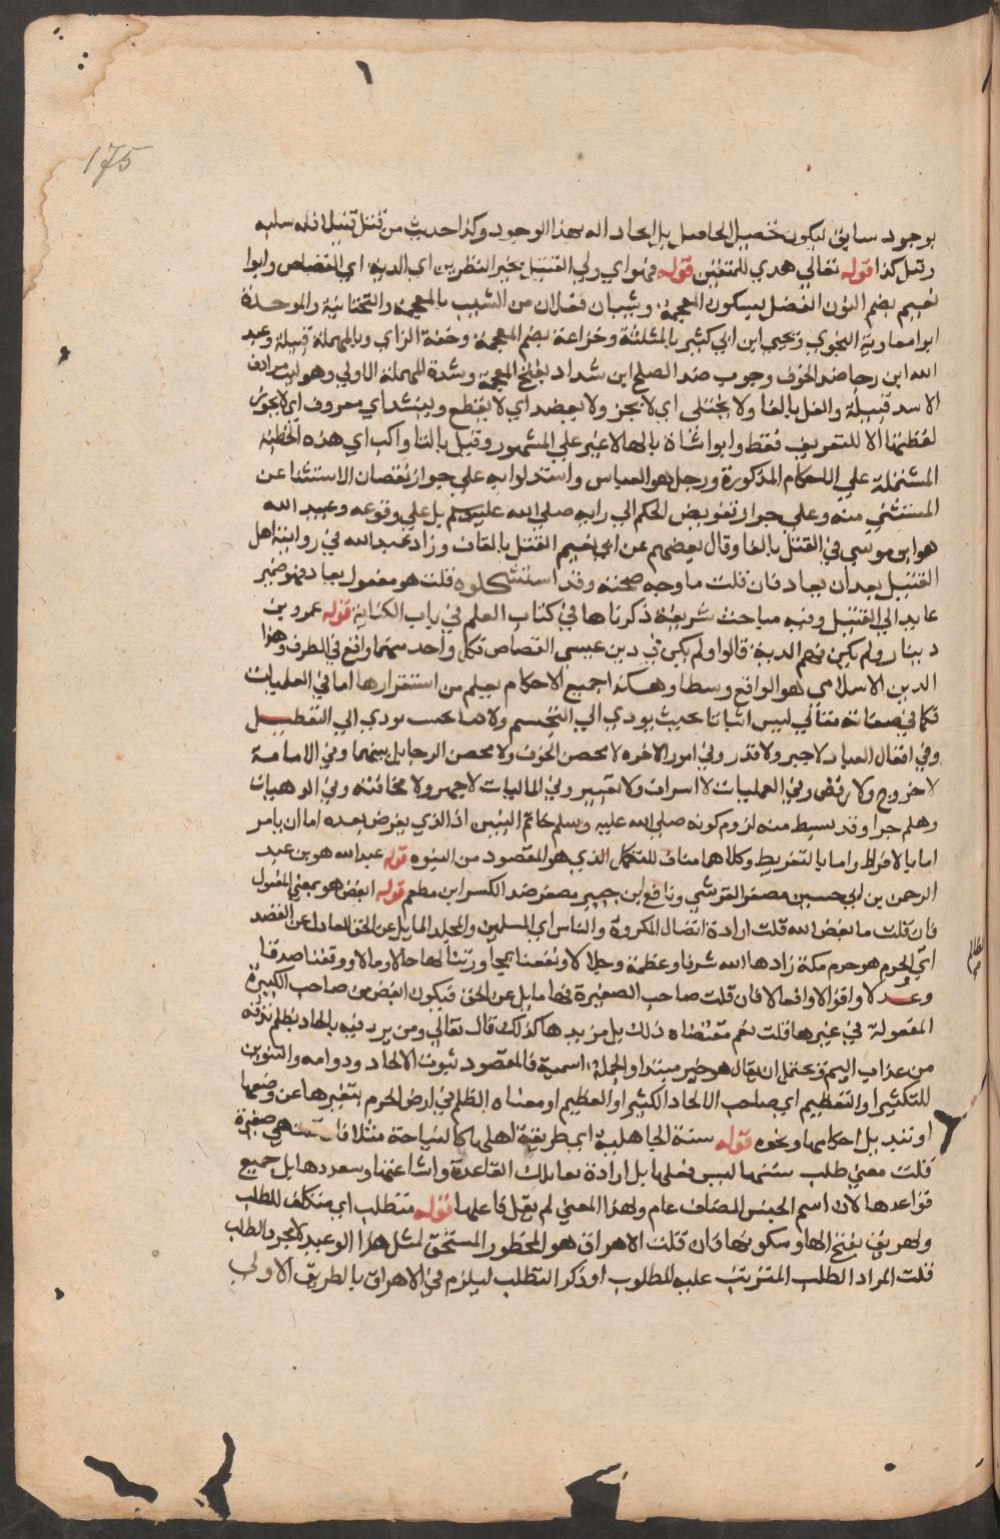 175
بوجود سابق ليكون تحصيل الحاصل بل ايجاد اله بهذا الوجود وكذا حديث من قتل قتيلا فله سلبه
وقتل كذا قوله تعالى هدي للمتقين قوله فهو اي ولي القتيل بخير النظرين اي الدية اي القصاص وابوا
نعيم بضم النون الفضل بسكون المعجمة وشيبان فعلان من الشيب بالمعجمة والتحتانية والموحدة
ابوا معاوية النحوي ويحيى ابن ابي كثير بالمثلثة وخزاعة بضم المعجمة وخفة الزاي وبالمهملة قبيلة وعبد
الله ابن رجا ضد الخوف وحرب ضد الصلح ابن شداد بفتح المعجمة وشدة المهملة الاولي وهو ليث مرادف
الاسد قبيلة والفل بالفا ولا يختلى اي لا يجز ولا يعضد اي لا يقطع ولينشد اي معروف اي لا يجوز
لقطتها الا للتعريف فقط وابوا شاة بالها لا غير علي المشهور وقيل بالتا واكب اي هذه الخطبة
المشتملة علي الاحكام المذكورة ورجل هو العباس واستدلوا به علي جواز نقصان الاستثنا عن
المستثني منه وعلي جواز تفويض الحكم الي رايه صلي الله عليه وسلم بل علي وقوعه وعبيد الله
هو ابن موسي في القتل بالفا وقال بعضهم عن ابي نعيم القتل بالقاف وزاد عبيد الله في روايته اهل
القتيل بعد ان يقاد فان قلت ما وجه صحته وقد استشكلوه قلت هو مفعول يقاد فهو ضمير
عايد الي القتيل وفيه مباحث شريفة ذكرناها في كتاب العلم في باب الكتابة قوله عمرو بن
دينار ولم يكن فيهم الدية قالوا ولم يكن في دين عيسي القصاص فكل واحد منهما واقع في الطرف وهذا
الدين الاسلامي هو الواقع وسطا وهكذا جميع الاحكام يعلم من استقرارها اما في العلميات
فكما في صفاته تعالي ليس اثباتا بحيث يودي الي التجسم ولا نفيا بحيث يودي الي التعطيل
وفي افعال العباد لا جبر ولا قدر وفي امور الاخره لا محض الخوف ولا محض الرجا بل بينهما وفي الامامة
لا خروج ولا رفض وفي العمليات لا اسراف ولا تقتير وفي الماليات لا جهر ولا مخافتة وفي الوهبات
وهلم جرا وقد بسيط منه لزوم كونه صلي الله عليه وسلم خاتم النبيين اذ الذي يفرض بعده اما ان يامر
اما بالافراط واما بالتفريط وكلاهما مناف للتكمل الذي هو المقصود من النبوه قوله عبد الله هو بن عبد
الرحمن بن ابي حسين مصغر القرشي ونافع ابن جبير مصغر ضد الكسر ابن مطعم قوله ابغض هو بمعني المفعول
فان قلت ما بغض الله قلت ارادة اتصال المكروة والناس اي المسلمين والملحد المايل عن الحق العادل عن القصد
اتي الحرم هو حرم مكة زادها الله شرفا وعظمة وجلالا ونفعنا بمجاورتنا لها حالا ومالا ووقفنا صدقا
وعدلا واقوالا وافعالا فان قلت صاحب الصغيرة فيها مايل عن الحق فيكون ابغض من صاحب الكبيرة
المفعولة في غيرها قلت نعم مقتضاه ذلك بل مريدها كذلك قال تعالي ومن يرد فيه بالحاد بظلم نذقه
من عذاب اليم وقد يحتمل ان يقال هو خبر مبتدا والجملة اسمية فالمقصود ثبوت الالحاد ودوامه والتنوين
للتكثير او التعظيم اي صاحب الالحاد الكثير او العظيم او معناه الظلم في ارض الحرم بتغيرها عن وضعها
او تبديل احكامها ونحوه قوله سنة الجاهلية اي طريقة اهلها كالنياحة مثلا فان هي صغيرة
قلت معني طلب سنتها ليس فعلها بل ارادة بقا تلك القاعدة واشاعتها وسعددها بل جميع
قواعدها لان اسم الجنس المضاف عام ولهذا المعني لم يقل فاعلها قوله متطلب اي متكلف للطلب
ولهريق بفتح الها وسكونها فان قلت الاهراق هو المحظور المستحق لمثل هذا الوعيد لا مجرد الطلب
قلت المراد الطلب المترتب عليه المطلوب او ذكر التطلب ليلزم في الاهراق بالطريق الاولي